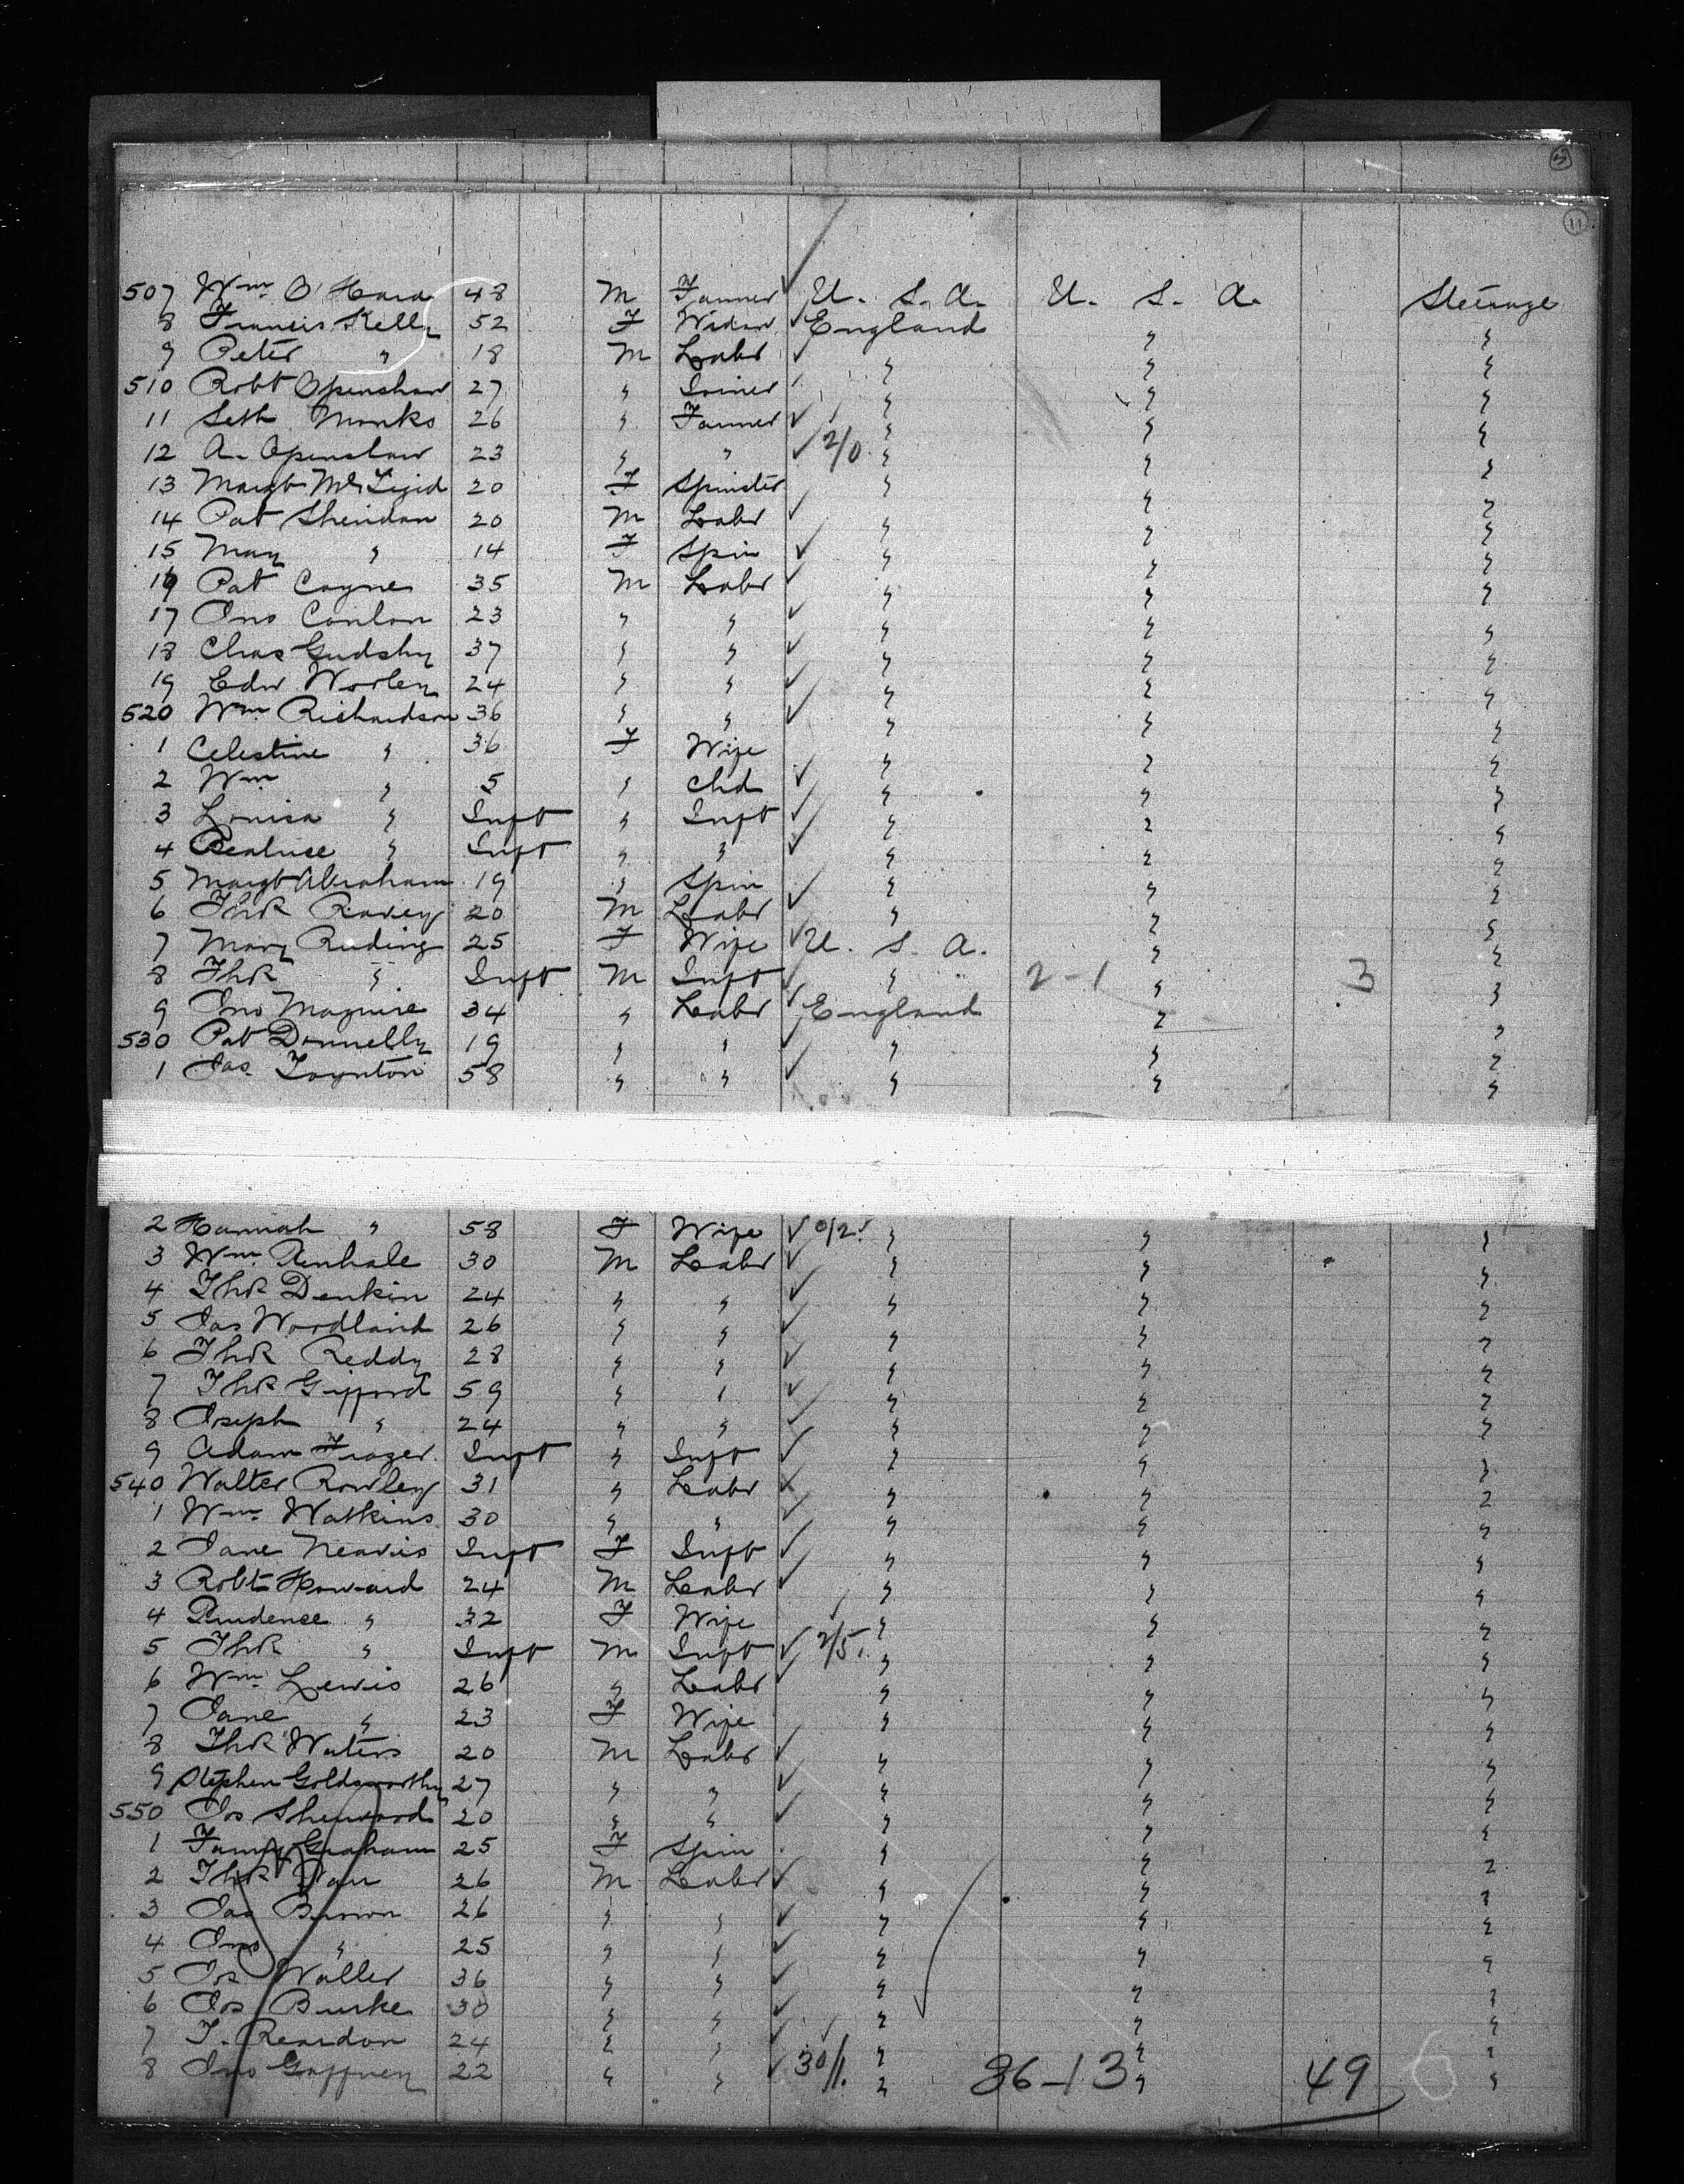 3
11
507 Wm O'Hara 48 M Farmer U. S. A. U. S. A. Steerage
8 Francis Kelly 52 F Widow England " "
9 Peter " 18 M Labr " " "
510 Robt Openshaw 27 " Joiner " " "
11 Seth Monks 26 " Farmer " " "
12 A. Openshaw 23 " " 2/0 " " "
13 Margt 20 F Spinster " " "
14 Pat Sheridan 20 M Labr " " "
15 Mary " 14 F Spin " " "
16 Pat Coyne 35 M Labr " " "
17 Jno Conlon 23 " " " " "
18 Chas 37 " " " " "
19 Edw Worley 24 " " " " "
520 Wm Richardson 36 " " " " "
1 Celestine " 36 F Wife " " "
2 Wm " 5 " Chd " " "
3 Louisa " Inft " Inft " " "
4 Beatrice " Inft " " " " "
5 Margt Abraham 19 " Spin " " "
6 Thos 20 M Labr " " "
7 Mary Ruding 25 F Wife U. S. A. " "
8 Thos " Inft M Inft " 2-1 " 3 "
9 Jno Maguire 34 " Labr England " "
530 Pat Donnelly 19 " " " " "
1 Jas Toynton 58 " " " " "
2 Hannah " 58 F Wife 0/2 " " "
3 Wm 30 M Labr " " "
4 Thos Denkin 24 " " " " "
5 Jas Woodland 26 " " " " "
6 Thos Reddy 28 " " " " "
7 Thos Gifford 59 " " " " "
8 Joseph " 24 " " " " "
9 Adam Frazer Inft " Inft " " "
540 Walter Rowley 31 " Labr " " "
1 Wm Watkins 30 " " " " "
2 Jane Inft F Inft " " "
3 Robt Howard 24 M Labr " " "
4 Prudence " 32 F Wife " " "
5 Thos " Inft M Inft 2/5 " " "
6 Wm Lewis 26 " Labr " " "
7 Jane " 23 F Wife " " "
8 Thos Waters 20 M Labr " " "
9 Stephen Goldsworthy 27 " " " " "
550 Jos Sherwood 20 " " " " "
1 Fanny Graham 25 F Spin " " "
2 Thos 26 M Labr " " "
3 Jas Brown 26 " " " " "
4 Jno " 25 " " " " "
5 Jos Waller 36 " " " " "
6 Jos Burke 30 " " " " "
7 T. Reardon 24 " " " " "
8 Jno Gaffney 22 " " 30/1. " 36-13 " 49 6 "